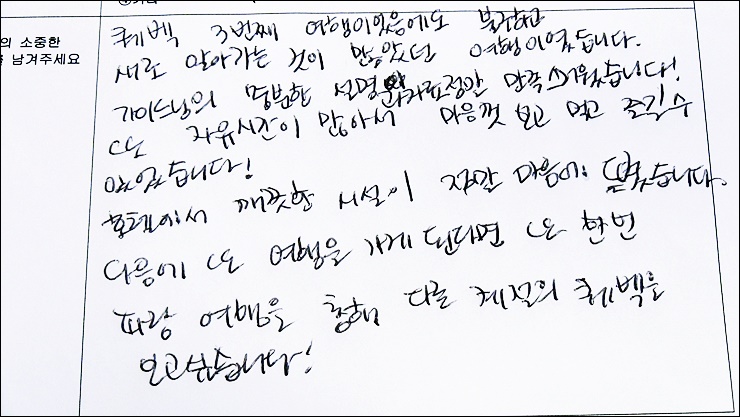 의 소중한
남겨주세요
퀘벡 3번째 여행이었음에도 불구하고
새로 알아가는 것이 많았던 여행이었습니다.
가이드님의 충분한 설명 정말 만족스러웠습니다!
또 자유시간이 많아서 마음껏 보고 먹고 즐길수
있었습니다!
호텔에서 깨끗한 시설이 정말 마음에 들었습니다.
다음에 또 여행을 가게 된다면 또 한번
파랑 여행을 통해 다른 계절의 퀘벡을
보고싶습니다!